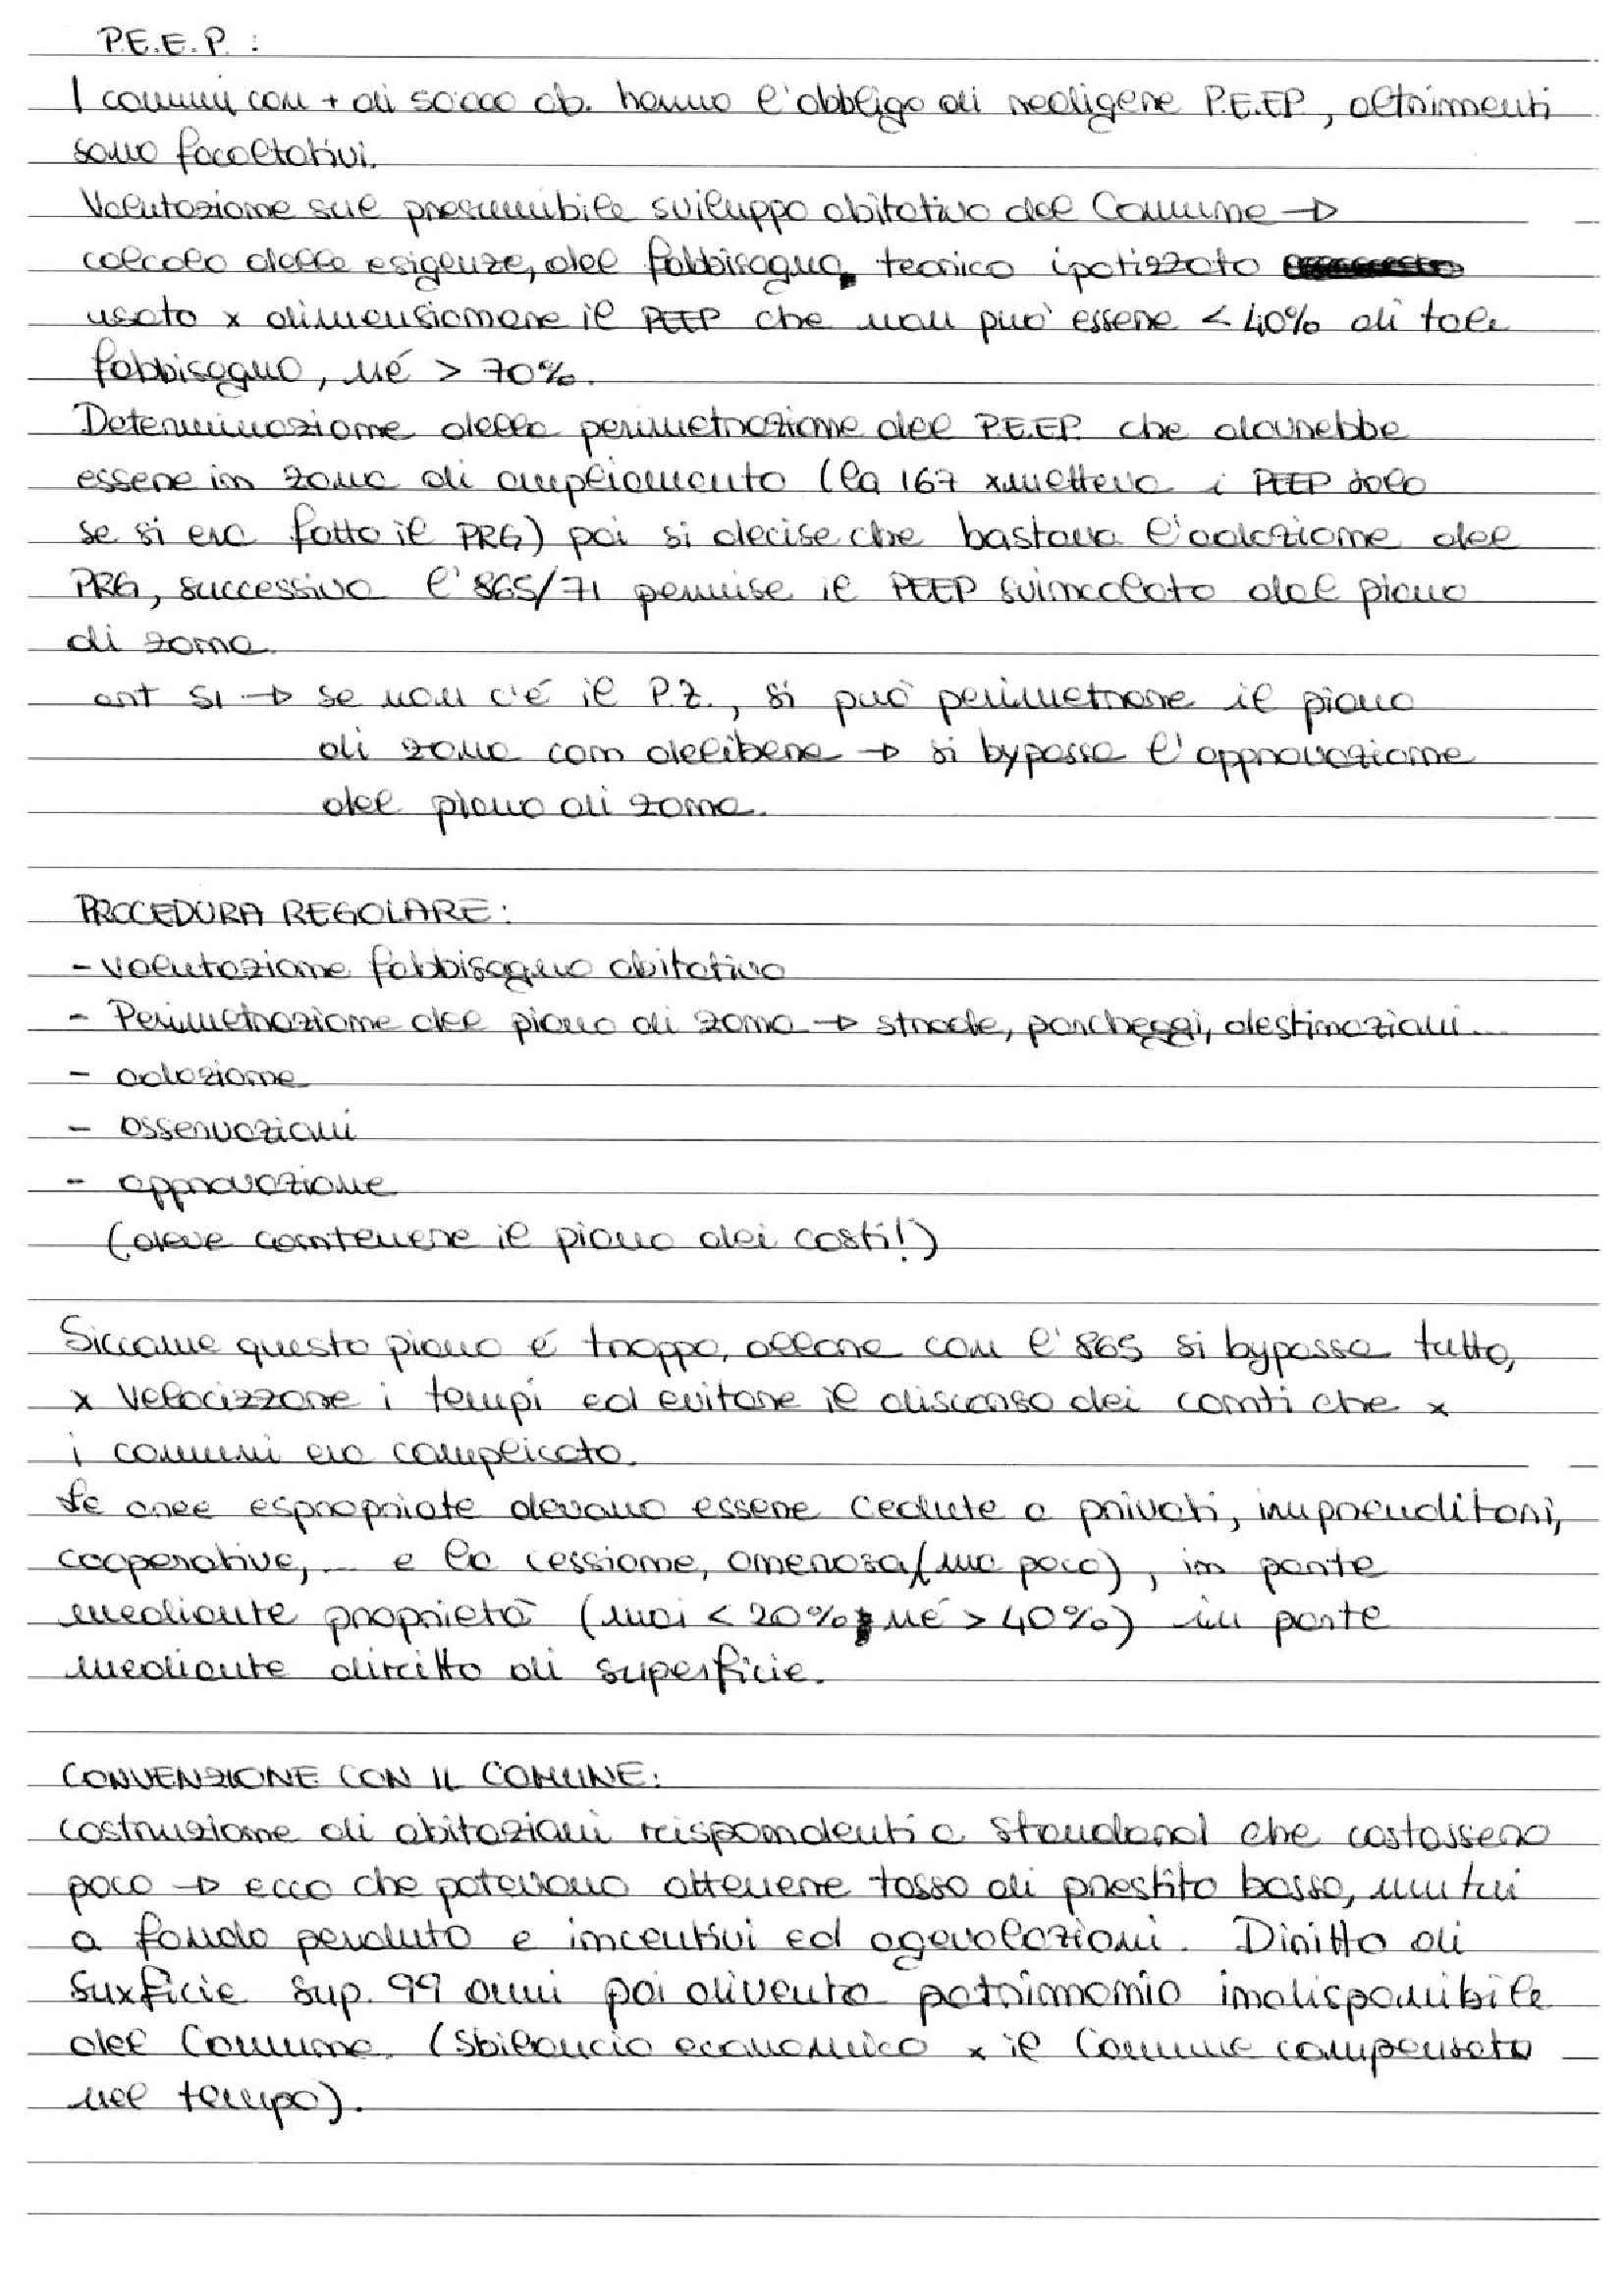 P.E.E.P. :
I comuni con + di 50'000 ab. hanno l'obbligo di redigere P.E.EP., altrimenti
sono facoltativi.
Valutazione sul presumibile sviluppo abitativo del Comune →
calcolo delle esigenze, del fabbisogno teorico ipotizzato
usato x dimensionare il PEEP che non può essere < 40% di tale
fabbisogno, né > 70%.
Determinazione della perimetrazione del P.E.EP. che dovrebbe
essere in zona di ampliamento (la 167 xmetteva i PEEP solo
se si era fatto il PRG) poi si decise che bastava l'adozione del
PRG, successiva l'865/71 permise il PEEP svincolato dal piano
di zona.
art 51 → se non c'é il P.Z., si può perimetrare il piano
di zona con delibera → si bypassa l'approvazione
del piano di zona.
PROCEDURA REGOLARE:
- valutazione fabbisogno abitativo
- Perimetrazione del piano di zona → strade, parcheggi, destinazioni...
- adozione
- osservazioni
- approvazione
(deve contenere il piano dei costi!)
Siccome questo piano é troppo, allora con l'865 si bypassa tutto,
x velocizzare i tempi ed evitare il discorso dei conti che x
i comuni era complicato.
Le aree espropriate devono essere cedute a privati, imprenditori,
cooperative,... e la cessione, onerosa (ma poco), in parte
mediante proprietà (mai < 20% né > 40%) in parte
mediante diritto di superficie.
CONVENZIONE CON IL COMUNE:
costruzione di abitazioni rispondenti a standard che costassero
poco → ecco che potevano ottenere tasso di prestito basso, mutui
a fondo perduto e incentivi ed agevolazioni. Diritto di
suxficie sup. 99 anni poi diventa patrimonio indisponibile
del Comune. (sbilancio economico x il Comune compensato
nel tempo).